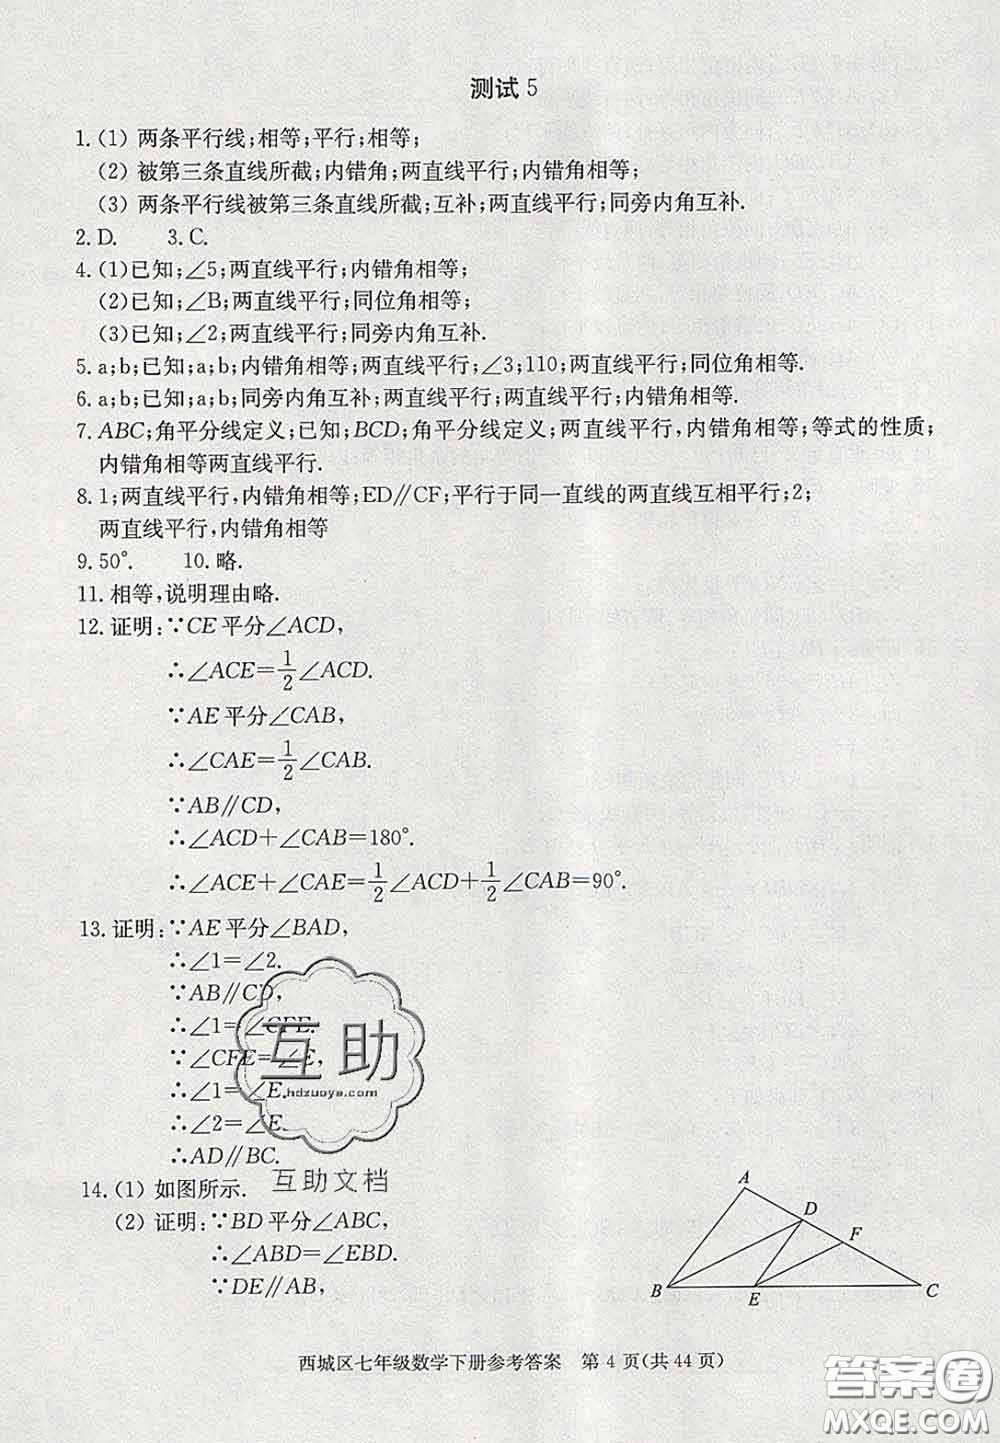 测试5
1.(1) 两条平行线;相等;平行;相等;
(2) 被第三条直线所截;内错角;两直线平行;内错角相等;
(3) 两条平行线被第三条直线所截;互补;两直线平行;同旁内角互补.
2.D. 3.C.
4.(1)已知;∠5;两直线平行;内错角相等;
(2)已知;∠B;两直线平行;同位角相等;
(3)已知;∠2;两直线平行;同旁内角互补.
5.a;b;已知;a;b;内错角相等;两直线平行;∠3;110;两直线平行;同位角相等.
6.a;b;已知;a;b;同旁内角互补;两直线平行;两直线平行;内错角相等.
7.ABC;角平分线定义;已知;BCD;角平分线定义;两直线平行,内错角相等;等式的性质;
内错角相等两直线平行.
8.1;两直线平行,内错角相等;ED∥CF;平行于同一直线的两直线互相平行;2;
两直线平行,内错角相等
9.50°. 10.略.
11.相等,说明理由略.
12.证明:∵CE平分∠ACD,
∴∠ACE=1/2∠ACD.
∵AE平分∠CAB,
∴∠CAE=1/2∠CAB.
∵AB∥CD,
∴∠ACD+∠CAB=180°.
∴∠ACE+∠CAE=1/2∠ACD+1/2∠CAB=90°.
13.证明:∵AE平分∠BAD,
∴∠1=∠2.
∵AB∥CD,
∴∠1=∠CFE.
∵∠CFE=∠E,
∴∠1=∠E.
∴∠2=∠E.
∴AD∥BC.
互助
hdzuoye.com
互助文档
14.(1) 如图所示.
(2) 证明:∵BD平分∠ABC,
∴∠ABD=∠EBD.
∵DE∥AB,
A
D
F
B
E
C
西城区七年级数学下册参考答案 第4页(共44页)
答案圈
MXQE.COM